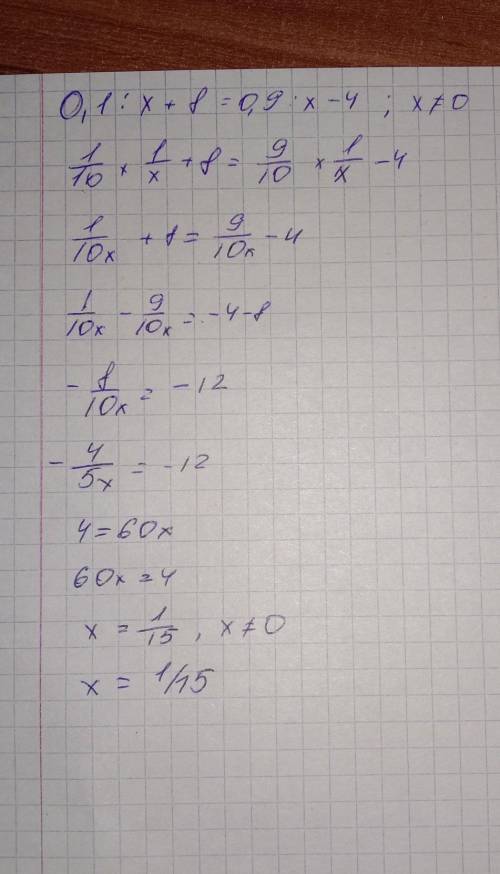 0,1 : x + 8 = 0,9 : x - 4 ; x ≠ 0
1/10 × 1/x + 8 = 9/10 × 1/x - 4
1/10x + 8 = 9/10x - 4
1/10x - 9/10x = -4-8
- 8/10x = -12
- 4/5x = -12
4 = 60x
60x = 4
x = 1/15 , x ≠ 0
x = 1/15